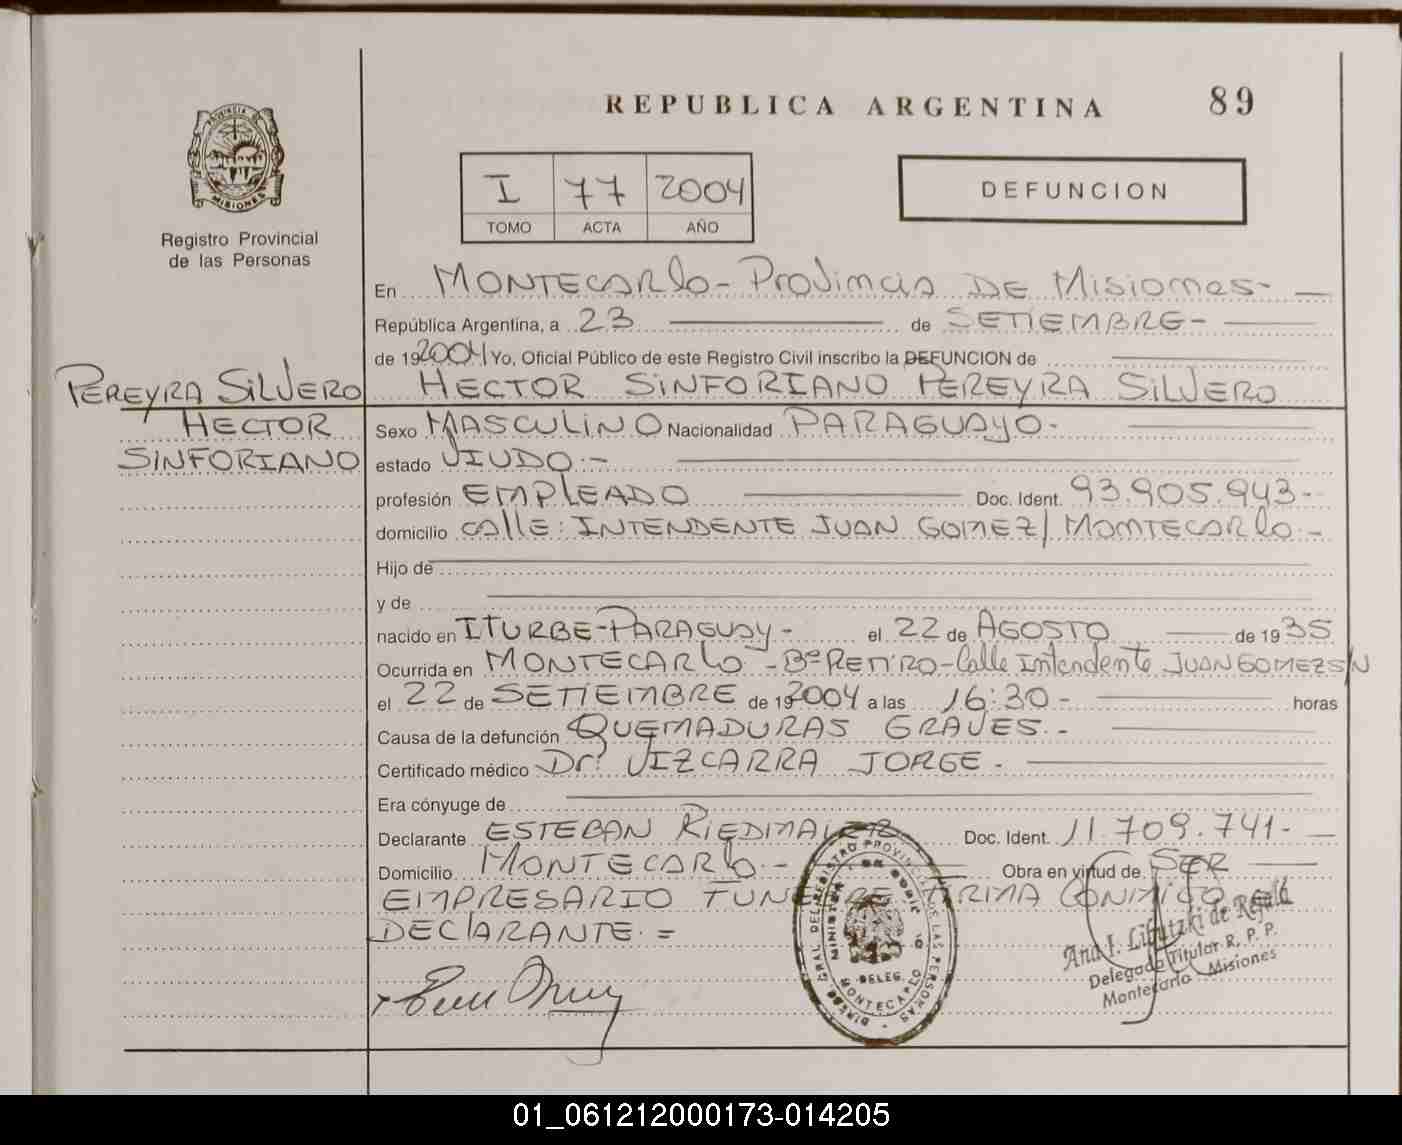 REPUBLICA ARGENTINA 89
PROVINCIA DE
MISIONES
Registro Provincial
de las Personas
I 77 2004
TOMO ACTA AÑO
DEFUNCION
En MONTECARlo - Provincia DE Misiones -
República Argentina, a 23 de SETIEMBRE -
de 192004 Yo, Oficial Público de este Registro Civil inscribo la DEFUNCION de
PEREYRA SILVERO
HECTOR
SINFORIANO
HECTOR SINFORIANO PEREYRA SILVERO
Sexo MASCULINO Nacionalidad PARAGUAYO -
estado VIUDO . -
profesión EMPLEADO Doc. Ident. 93.905.943 -
domicilio CAllE: INTENDENTE JUAN GOMEZ/ MONTECARlo . -
Hijo de
y de
nacido en ITURBE - PARAGUAY - el 22 de AGOSTO de 1935
Ocurrida en MONTECARlo - Bº RETIRO - Calle Intendente JUAN GOMEZ S/N
el 22 de SETIEMBRE de 192004 a las 16:30 - horas
Causa de la defunción QUEMADURAS GRAVES . -
Certificado médico Dr. VIZCARRA JORGE -
Era cónyuge de
Declarante ESTEBAN RIEDMAIER Doc. Ident. 11.709.741 -
Domicilio MONTECARlo - Obra en virtud de SER
EMPRESARIO FUNEBRE FIRMA CONMIGO el
DEClARANTE . =
DIREC. GRAL. DEL REGISTRO PROVINCIAL DE LAS PERSONAS
DELEG.
MONTECARLO
Ana I. de
Delegada Titular R. P. P.
Montecarlo Misiones
01_061212000173-014205